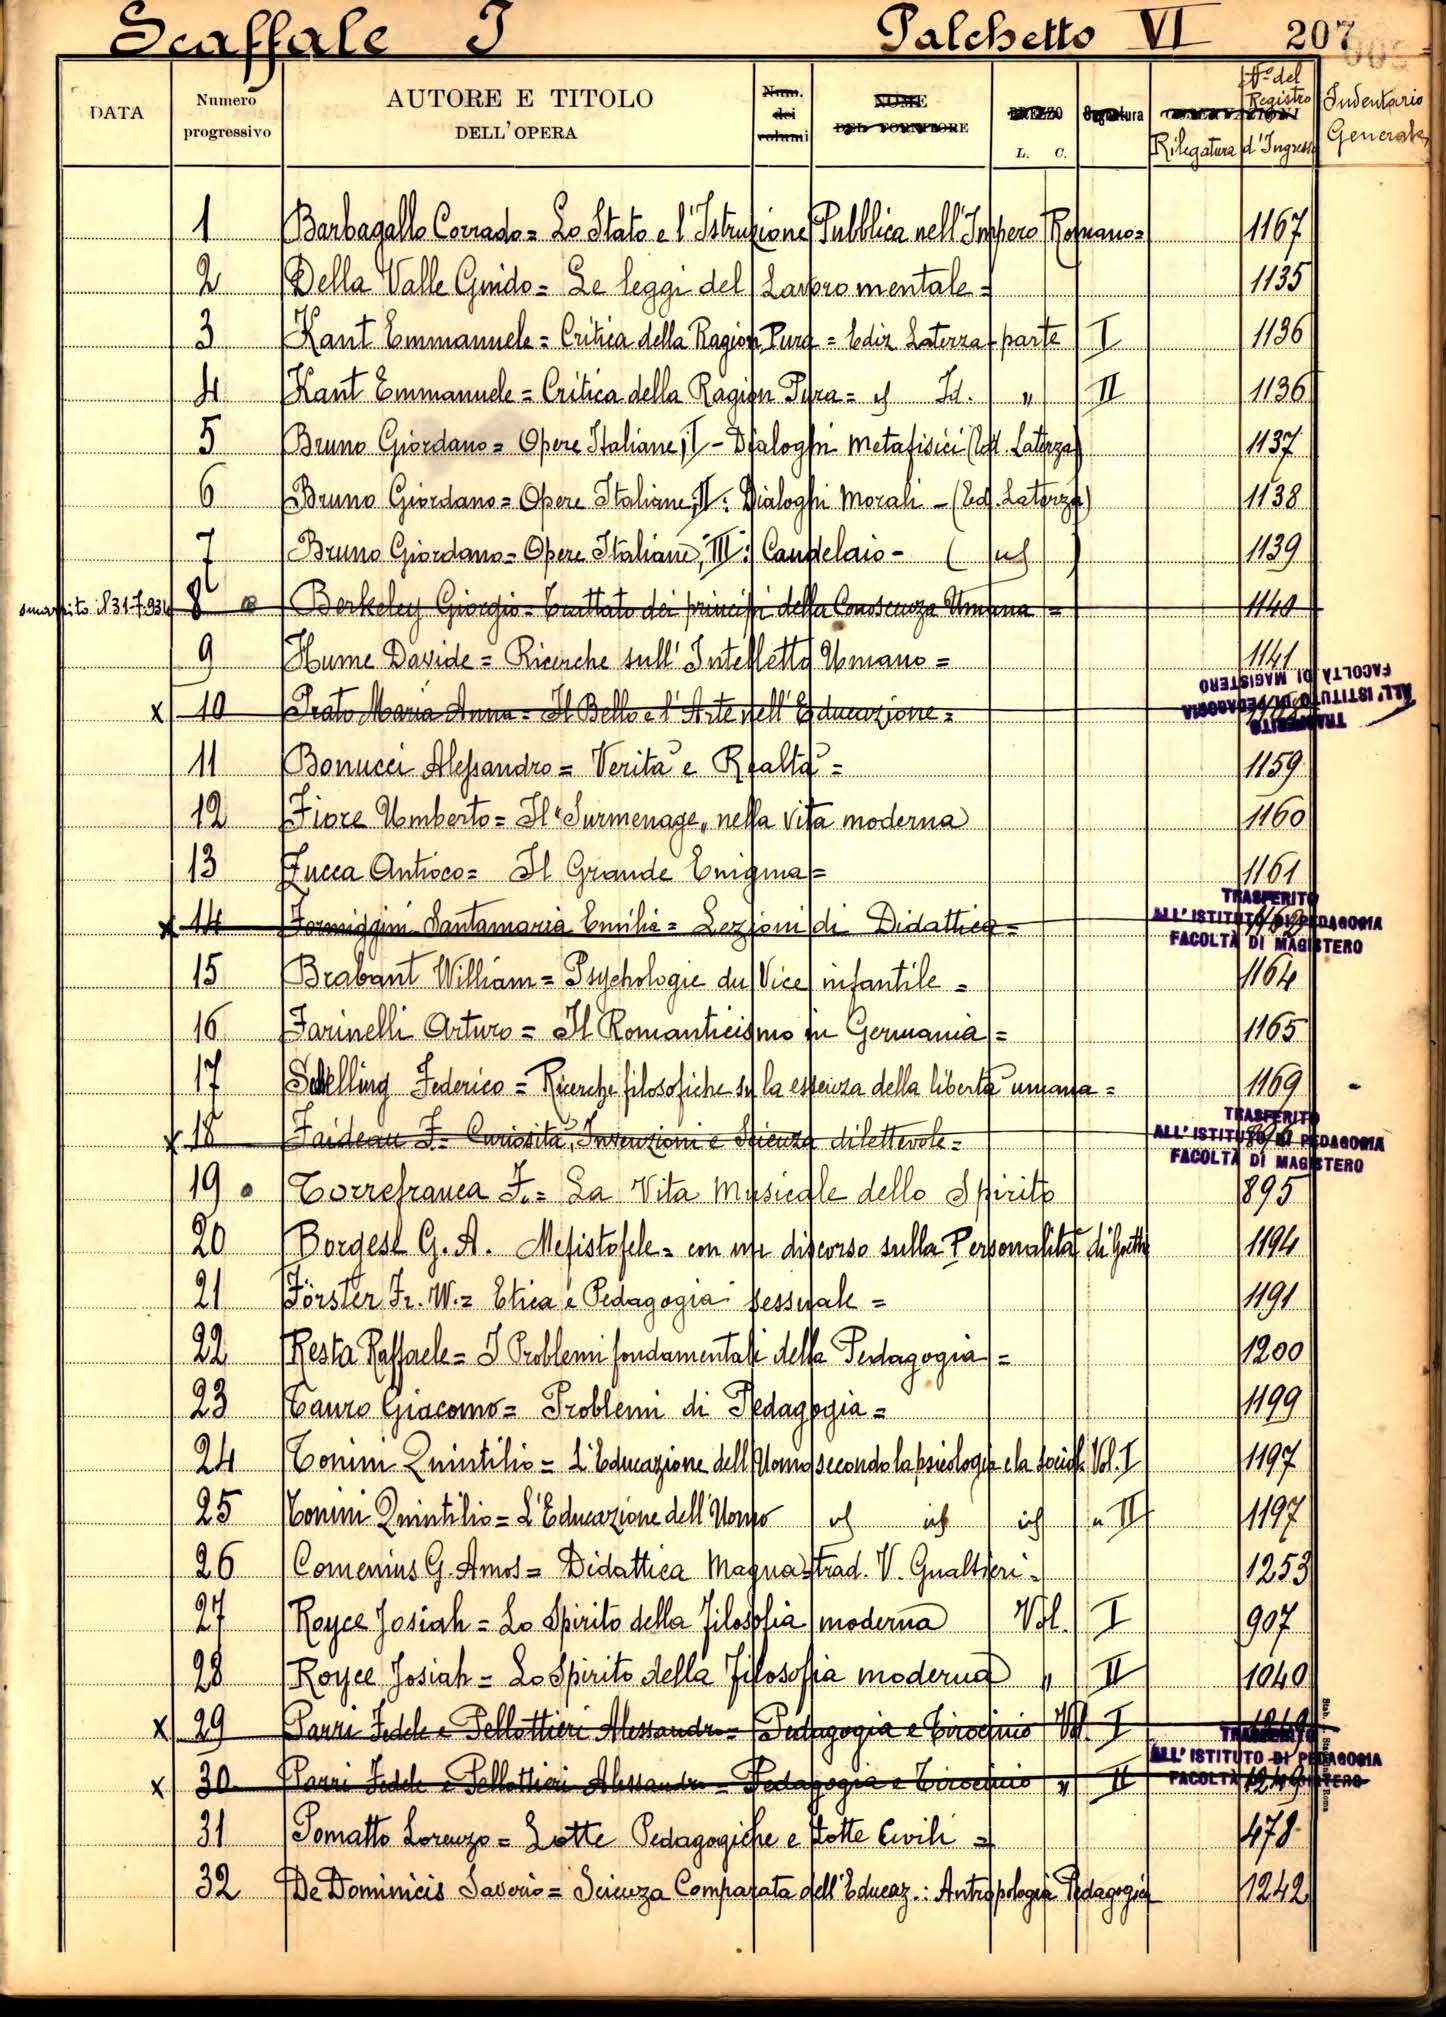 Scaffale I Palchetto VI 207
DATA Numero progressivo AUTORE E TITOLO DELL'OPERA Num. dei volumi NOME DEL FORNITORE PREZZO L. C. Segnatura Rilegatura N.º del Registro d'Ingresso Inventario Generale
1 Barbagallo Corrado = Lo Stato e l'Istruzione Pubblica nell'Impero Romano = 1167
2 Della Valle Guido = Le leggi del Lavoro mentale = 1135
3 Kant Emmanuele = Critica della Ragion Pura = Ediz Laterza - parte I 1136
4 Kant Emmanuele = Critica della Ragion Pura = id Id. " II 1136
5 Bruno Giordano = Opere Italiane, I - Dialoghi metafisici (Ed. Laterza) 1137
6 Bruno Giordano = Opere Italiane; II: Dialoghi Morali - (Ed. Laterza) 1138
7 Bruno Giordano = Opere Italiane, III: Candelaio - ( id ) 1139
smarrito 31-7-934 8 Berkeley Giorgio = Trattato dei principi della Conoscenza Umana = 1140
9 Hume Davide = Ricerche sull'Intelletto Umano = 1141
x 10 Prato Maria Anna = Il Bello e l'Arte nell'Educazione =
TRASFERITO
ALL'ISTITUTO DI PEDAGOGIA
FACOLTÀ DI MAGISTERO
11 Bonucci Alessandro = Verità e Realtà = 1159
12 Fiore Umberto = Il "Surmenage" nella vita moderna 1160
13 Zucca Antioco = Il Grande Enigma = 1161
x 14 Formiggini Santamaria Emilia = Lezioni di Didattica = 1162
TRASFERITO
ALL'ISTITUTO DI PEDAGOGIA
FACOLTÀ DI MAGISTERO
15 Brabant William = Psychologie du Vice infantile = 1164
16 Farinelli Arturo = Il Romanticismo in Germania = 1165
17 Schelling Federico = Ricerche filosofiche su la essenza della libertà umana = 1169
x 18 Faideau F. = Curiosità, Invenzioni e Scienza dilettevole =
TRASFERITO
ALL'ISTITUTO DI PEDAGOGIA
FACOLTÀ DI MAGISTERO
19 Torrefranca F. = La Vita Musicale dello Spirito 895
20 Borgese G. A. Mefistofele = con un discorso sulla Personalità di Goethe 1194
21 Förster Fr. W. = Etica e Pedagogia sessuale = 1191
22 Resta Raffaele = I Problemi fondamentali della Pedagogia = 1200
23 Tauro Giacomo = Problemi di Pedagogia = 1199
24 Tonini Quintilio = L'Educazione dell'Uomo secondo la psicologia e la sociol. Vol. I 1197
25 Tonini Quintilio = L'Educazione dell'Uomo id id id " II 1197
26 Comenius G. Amos = Didattica Magna = trad. V. Gualtieri = 1253
27 Royce Josiah = Lo Spirito della Filosofia moderna Vol. I 907
28 Royce Josiah = Lo Spirito della Filosofia moderna " II 1040
x 29 Parri Fedele e Pellottieri Alessandro = Pedagogia e Tirocinio Vol. I
TRASFERITO
ALL'ISTITUTO DI PEDAGOGIA
FACOLTÀ DI MAGISTERO
x 30 Parri Fedele e Pellottieri Alessandro = Pedagogia e Tirocinio " II 1249
31 Pomatto Lorenzo = Lotte Pedagogiche e Lotte Civili = 478
32 De Dominicis Saverio = Scienza Comparata dell'Educaz.: Antropologia Pedagogica 1242